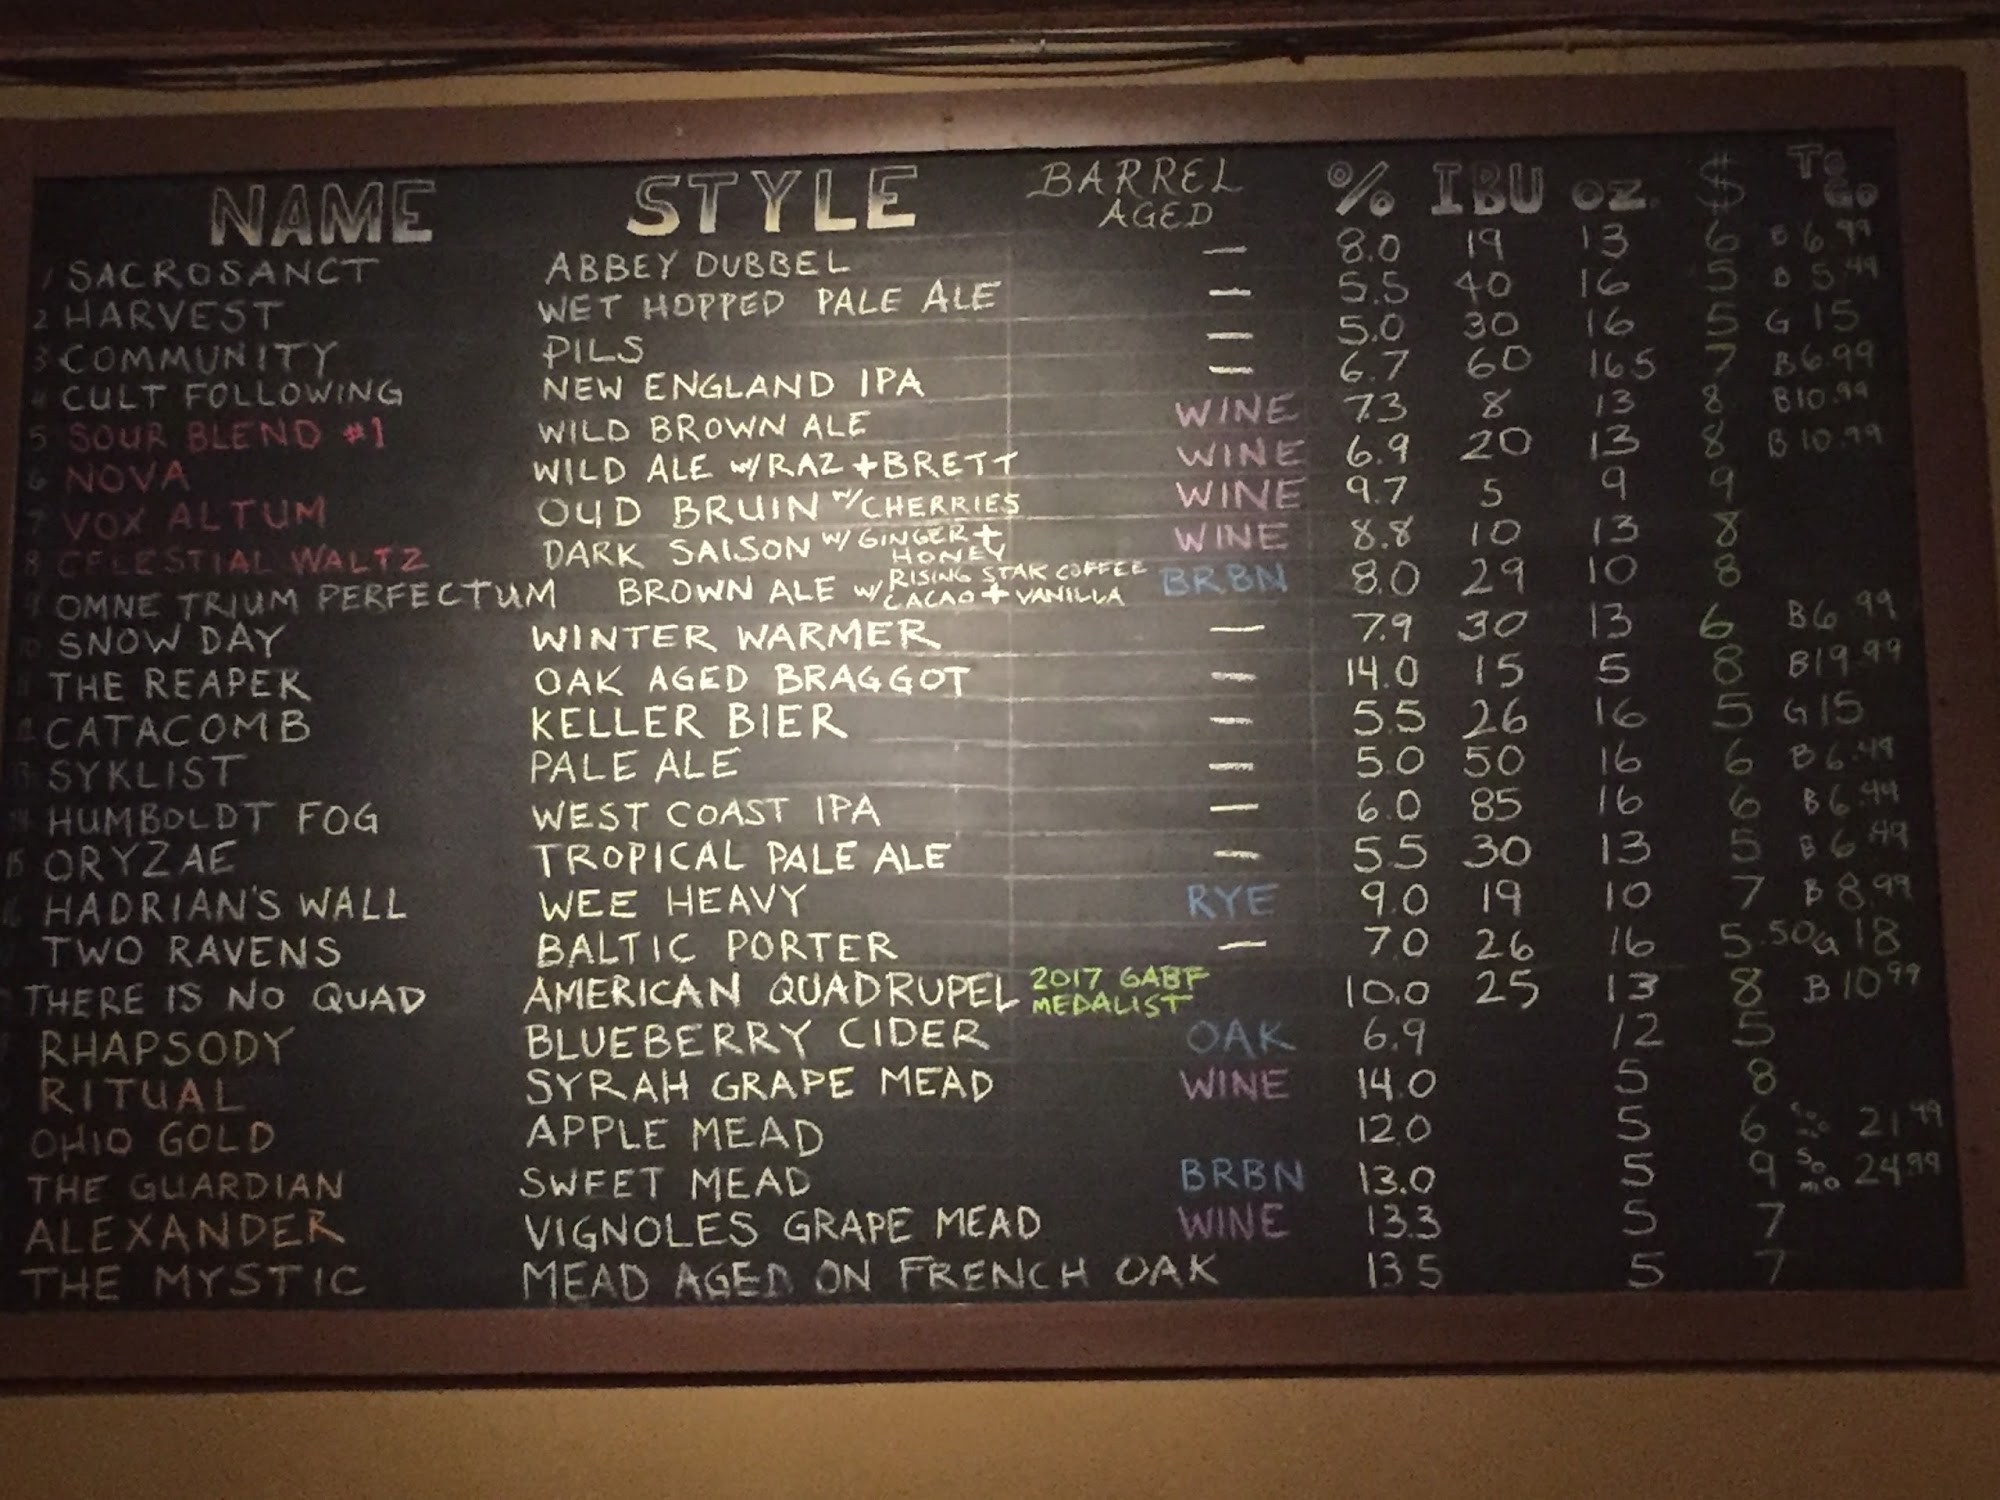 NAME STYLE BARREL AGED % IBU OZ. $ TO GO
1 SACROSANCT ABBEY DUBBEL — 8.0 19 13 6 B 6.99
2 HARVEST WET HOPPED PALE ALE — 5.5 40 16 5 B 5.49
3 COMMUNITY PILS — 5.0 30 16 5 G 15
4 CULT FOLLOWING NEW ENGLAND IPA — 6.7 60 16.5 7 B6.99
5 SOUR BLEND #1 WILD BROWN ALE WINE 7.3 8 13 8 B10.99
6 NOVA WILD ALE w/ RAZ + BRETT WINE 6.9 20 13 8 B 10.99
7 VOX ALTUM OUD BRUIN w/ CHERRIES WINE 9.7 5 9 9
8 CELESTIAL WALTZ DARK SAISON w/ GINGER + HONEY WINE 8.8 10 13 8
9 OMNE TRIUM PERFECTUM BROWN ALE w/ RISING STAR COFFEE CACAO + VANILLA BRBN 8.0 29 10 8
10 SNOW DAY WINTER WARMER — 7.9 30 13 6 B6.99
11 THE REAPER OAK AGED BRAGGOT — 14.0 15 5 8 B19.99
CATACOMB KELLER BIER — 5.5 26 16 5 G15
SYKLIST PALE ALE — 5.0 50 16 6 B6.49
14 HUMBOLDT FOG WEST COAST IPA — 6.0 85 16 6 B6.49
15 ORYZAE TROPICAL PALE ALE — 5.5 30 13 5 B6.49
16 HADRIAN'S WALL WEE HEAVY RYE 9.0 19 10 7 B 8.99
TWO RAVENS BALTIC PORTER — 7.0 26 16 5.50 G 18
THERE IS NO QUAD AMERICAN QUADRUPEL 2017 GABF MEDALIST 10.0 25 13 8 B 10.99
RHAPSODY BLUEBERRY CIDER OAK 6.9 12 5
RITUAL SYRAH GRAPE MEAD WINE 14.0 5 8
OHIO GOLD APPLE MEAD 12.0 5 6 21.99
THE GUARDIAN SWEET MEAD BRBN 13.0 5 9 24.99
ALEXANDER VIGNOLES GRAPE MEAD WINE 13.3 5 7
THE MYSTIC MEAD AGED ON FRENCH OAK 13.5 5 7